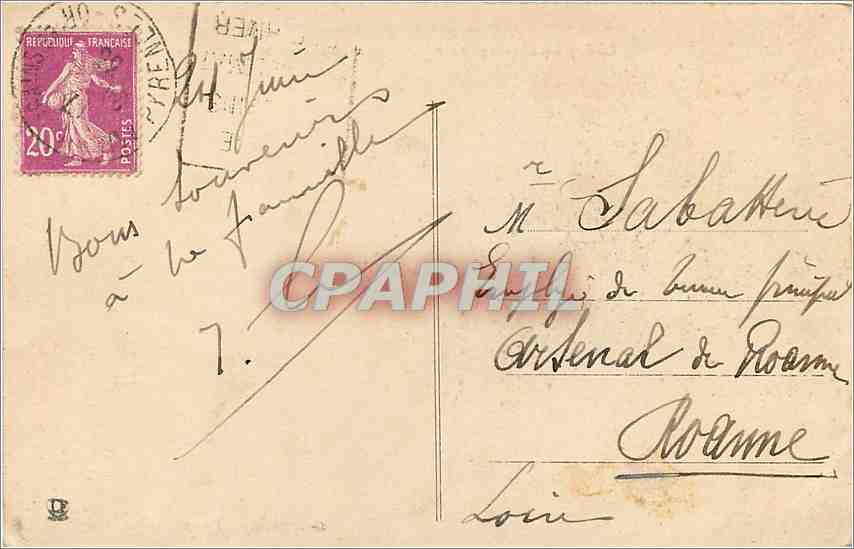 RÉPUBLIQUE FRANÇAISE
20c
POSTES
PYRENEES-OR
HIVER
24 Juin
Bons souvenirs
à la famille
J.
CPAPHIL
Mr Sabatterie
Employé de bureau principal
Arsenal de Roanne
Roanne
Loire